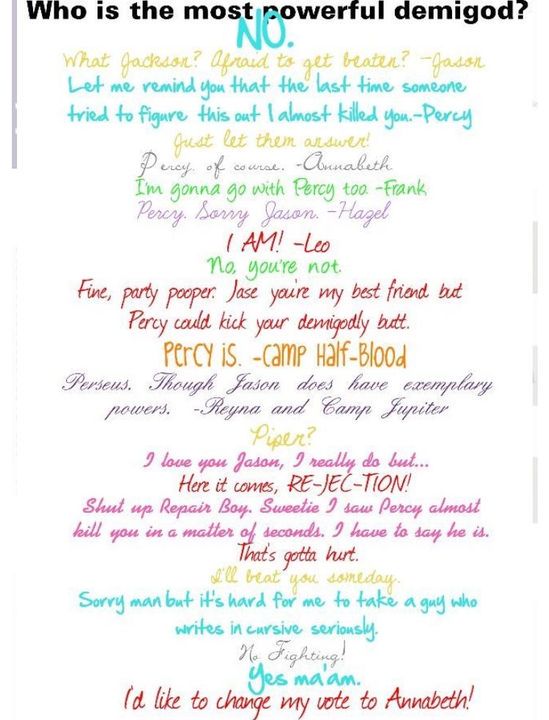 Who is the most powerful demigod?
NO.
What Jackson? Afraid to get beaten? -Jason
Let me remind you that the last time someone
tried to figure this out I almost killed you.-Percy
Just let them answer!
Percy, of course. -Annabeth
I'm gonna go with Percy too -Frank
Percy. Sorry Jason. -Hazel
I AM! -Leo
No, you're not.
Fine, party pooper. Jase you're my best friend but
Percy could kick your demigodly butt.
Percy is. -Camp Half-Blood
Perseus. Though Jason does have exemplary
powers. -Reyna and Camp Jupiter
Piper?
I love you Jason, I really do but...
Here it comes, RE-JEC-TION!
Shut up Repair Boy. Sweetie I saw Percy almost
kill you in a matter of seconds. I have to say he is.
That's gotta hurt.
I'll beat you someday.
Sorry man but it's hard for me to take a guy who
writes in cursive seriously.
No Fighting!
Yes ma'am.
I'd like to change my vote to Annabeth!